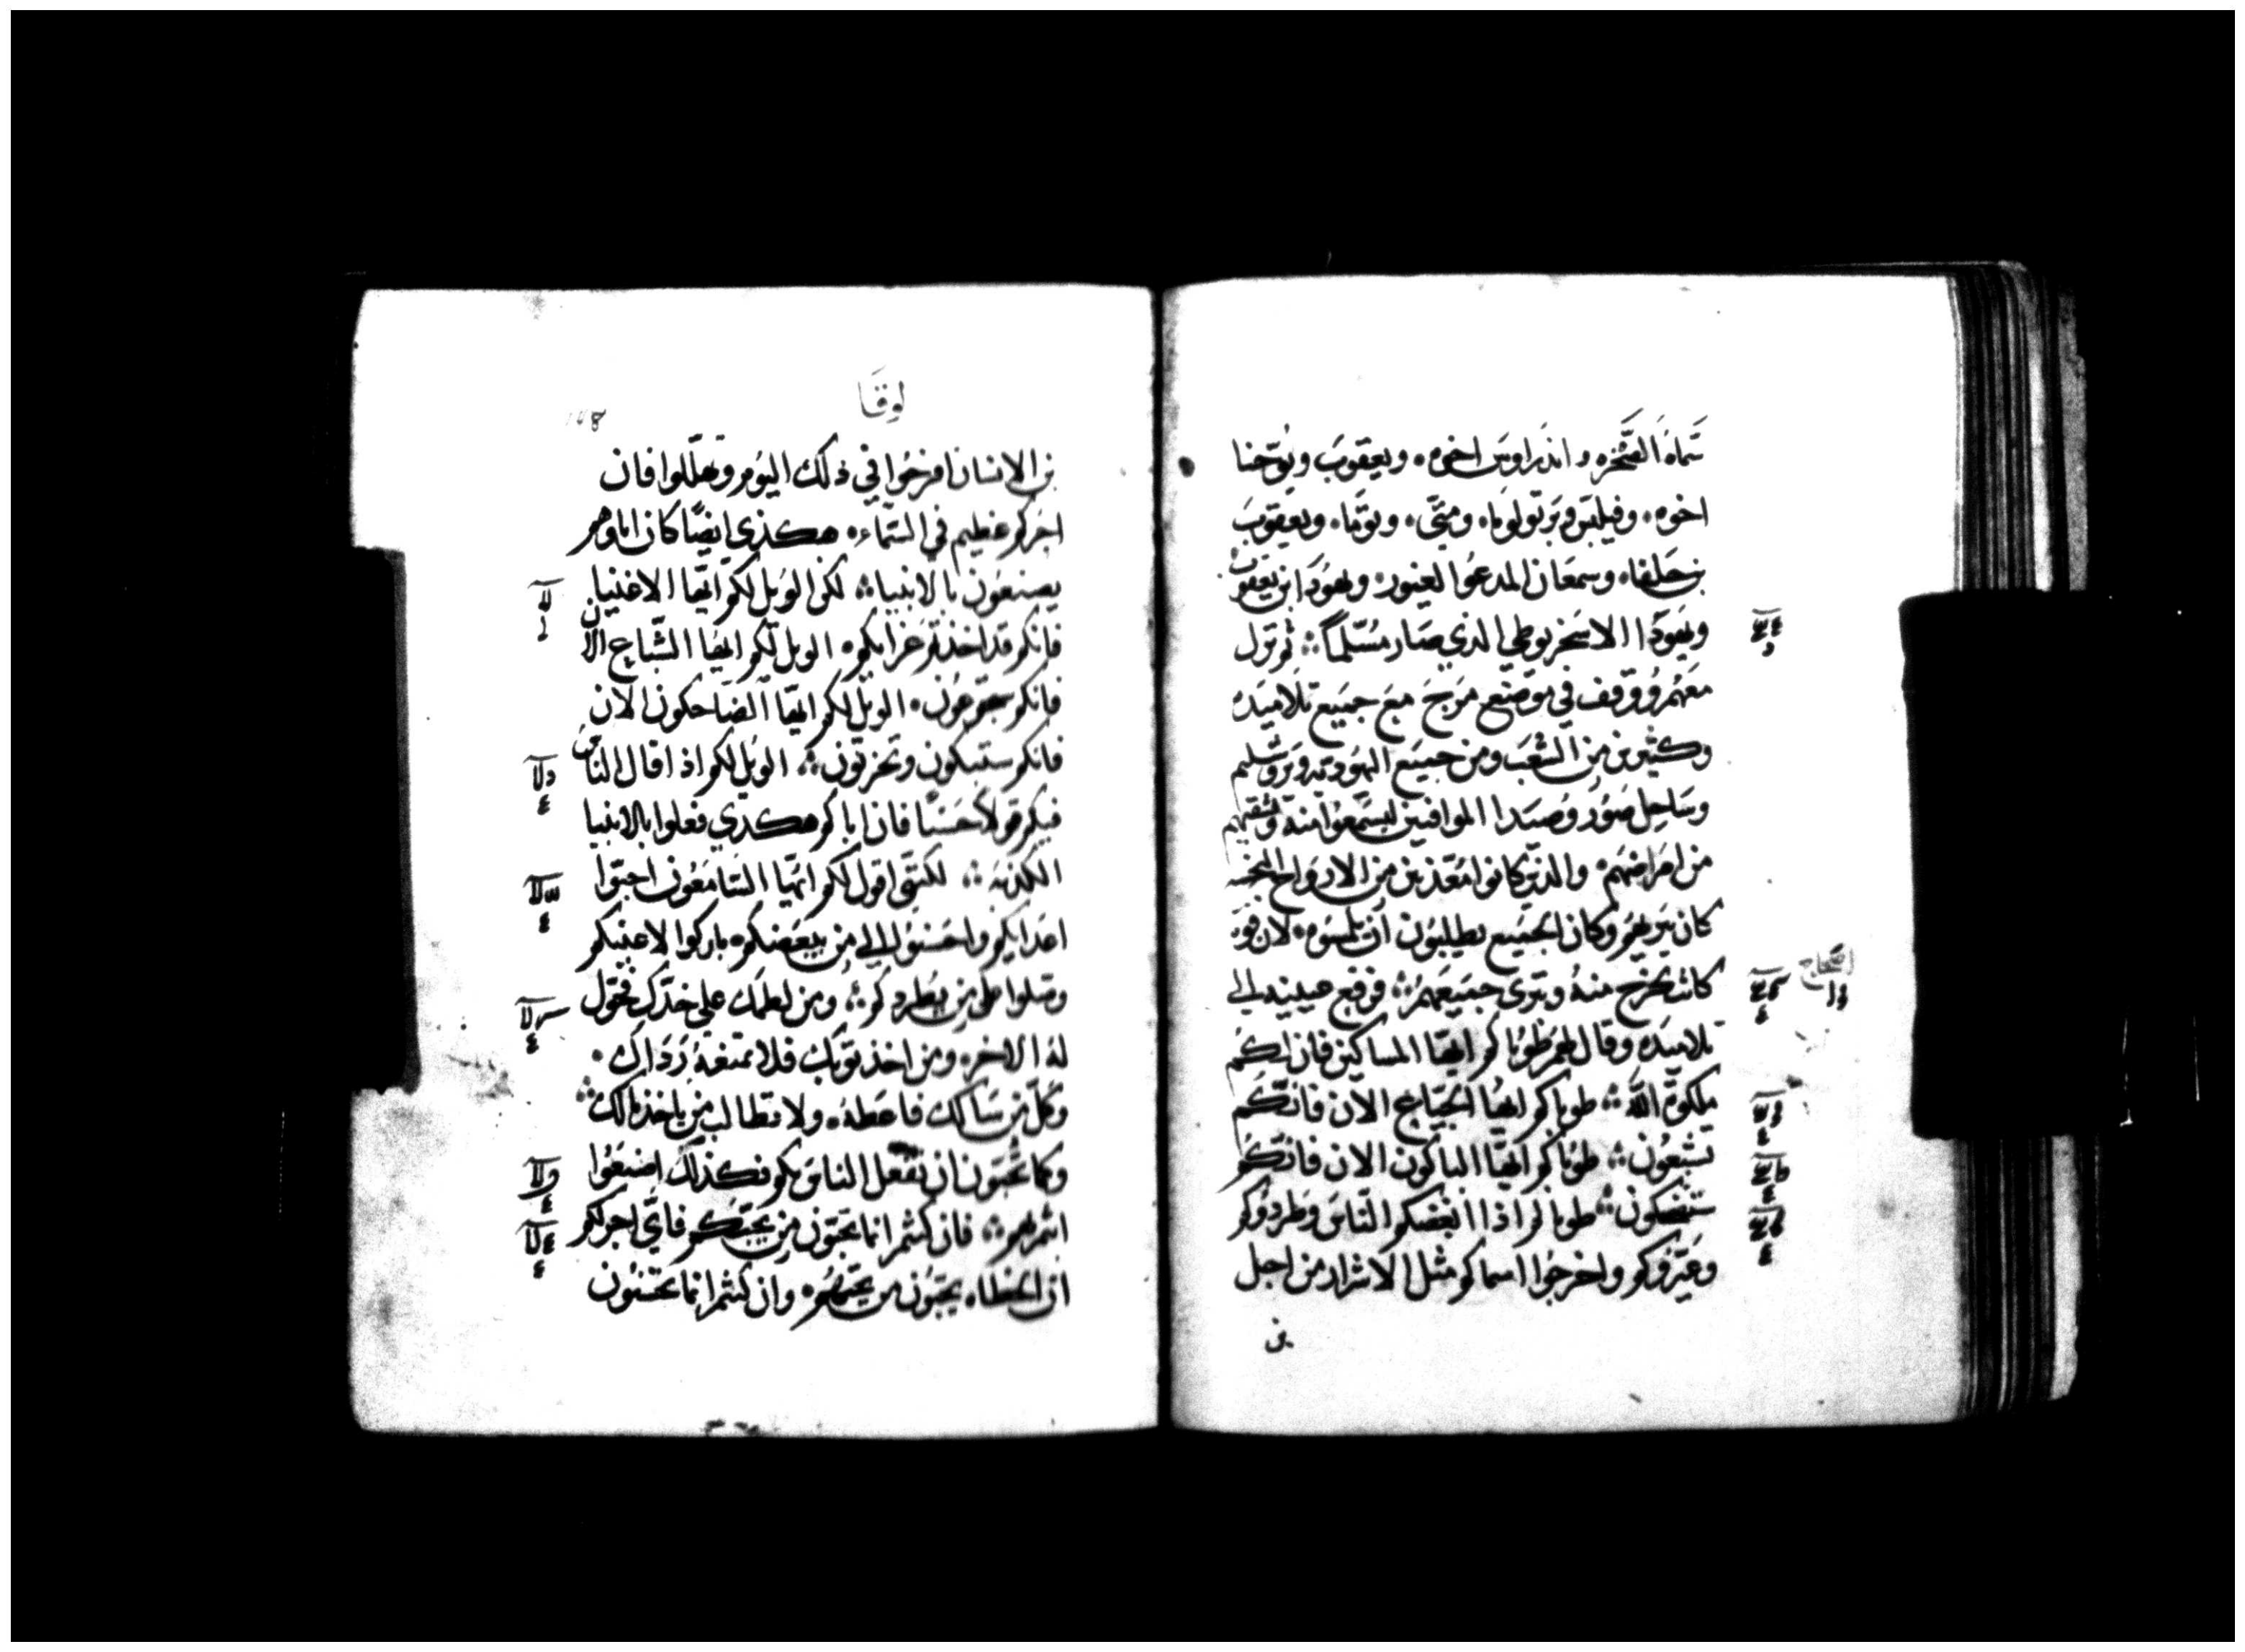 سَماهُ الصَّخره واندراوس اخوه ويعقوب ويوحَنا
اخوه وفيلبس وبرتولوما ومتَّى وتوما ويعقوب
بن حلفا وسمعَان المدعوا الغيور ويهودَا ابن يعقوب
ويهودا الاسخريوطي الذي صَار مسُلماً ثم نزل
معَهم ووقف في موضع مرَج مع جميع تلاميَده
وكثيرين من الشعَب ومن جميَع اليهودية ويروشليم
وسَاحِل صُور وصيَدا الموافيين ليسَمعوا منه ويشفيهم
من امراضهم والذين كانوا معَذبين من الارواح النجسه
كان يَبريهم وكان الجميَع يطلبون ان يلمسوه لان قوه
كانت تخرج منهُ وتبرى جميَعهم فرفع عينيه الى
تلاميَده وقال لهم طوبَاكم ايها المساكين فان لكم
ملكوت الله طوباكم ايها الجيَاع الان فانكم
تشبعون طوباكم ايها الباكون الان فانكم
ستضحكون طوباكم اذا ابغضكم الناس وطردوكم
وعيَّروكم واخرجوا اسماكم مثل الاشرار من اجل
بن
اصحاح
لوقا
بن الانسان افرحُوا في ذلك اليوم وتهللوا فان
اجركم عظيم في السَّماء هكذى ايضًا كان اباوهم
يصنعون بالانبياء لكن الويل لكم ايها الاغنيا
فانكم قد اخذتم عزايكم الويل لكم ايها الشباع الان
فانكم ستجوعون الويل لكم ايها الضَاحكون الان
فانكم ستبكون وتحزنون الويل لكم اذا قال الناس
فيكم قولاً حسَنًا فان اباكم هكذي فعلوا بالانبيا
الكدبه لكنني اقول لكم ايها السَامعُون احبوا
اعدايكم واحسَنوا الى من يبغضكم باركوا لاعنيكم
وصلوا على من يطردكم ومن لطمك على خدّك فحول
لهُ الاخر ومن اخذ ثوبك فلا تمنعَهُ رداك
وكل من سَالك فاعَطهُ ولا تطالب من ياخذ مالك
وكما تحبَون ان تفعَل الناس بكم فكذلك اصنعَوا
انتم بهم فان كنتم انما تحبون من يحبكم فاي اجر لكم
ان الخطاه يحبون من يحبهم وان كنتم انما تحسنون